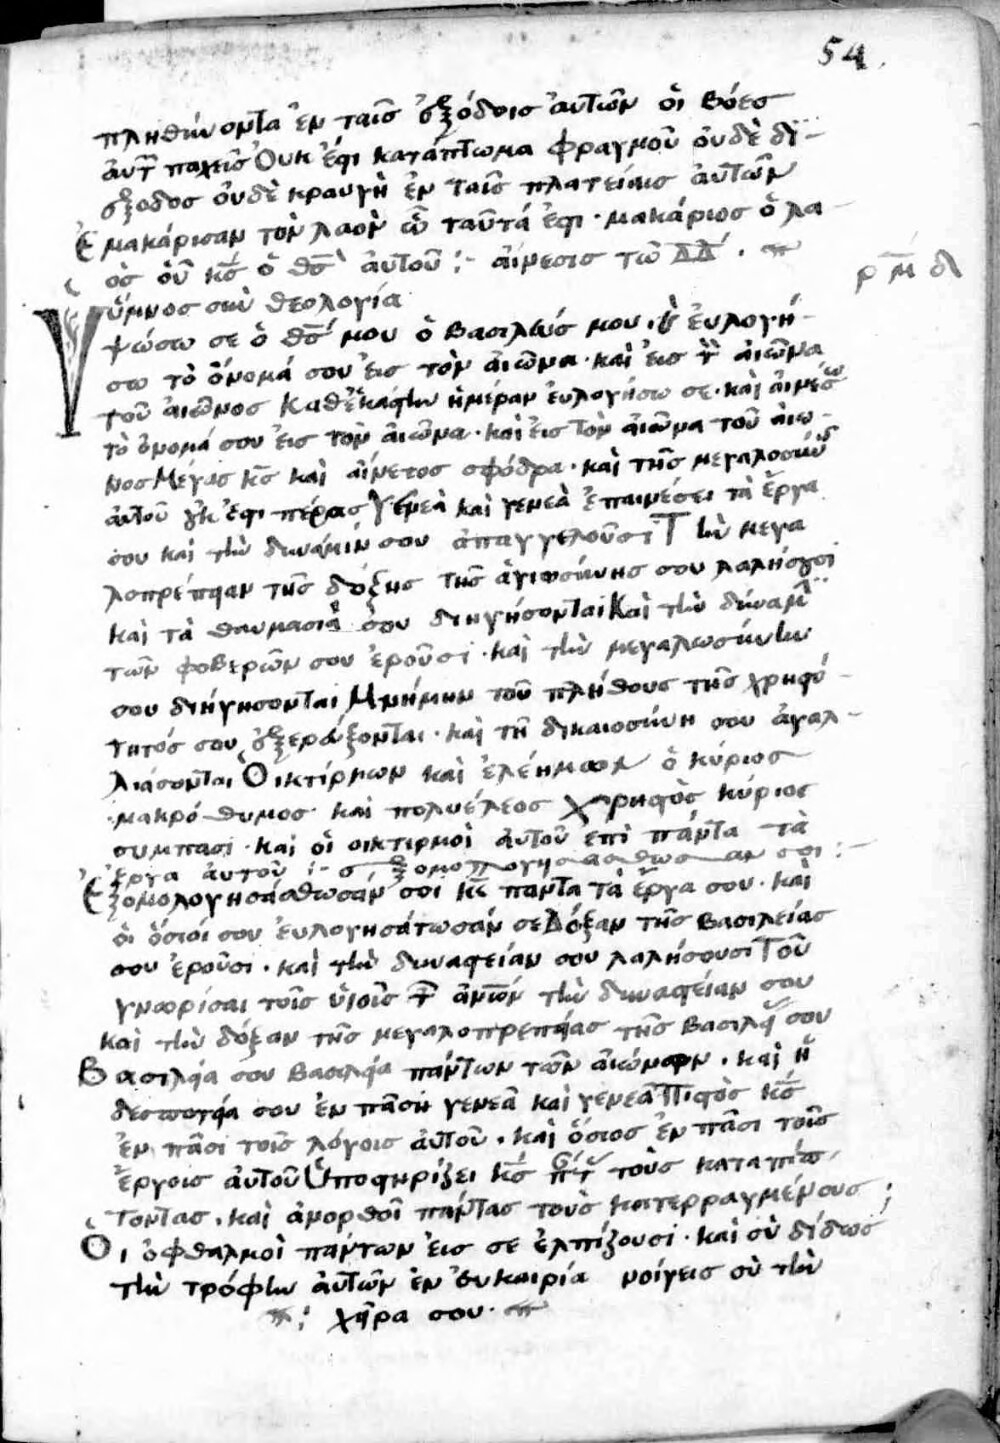 54
πληθύνοντα ἐν ταῖς ἐξόδοις αὐτῶν οἱ βόες
ἀυτ παχεῖς Ὀυκ ἔστι κατάπτωμα φραγμοῦ οὐδὲ δι-
έξοδος ὀυδὲ κραυγὴ ἐν ταῖς πλατείαις αὐτῶν
Ἐμακάρισαν τὸν λαὸν ὧ ταῦτά ἐστι · μακάριος ὁ λα-
ὸς οὗ κς ὁ θς αὐτοῦ :- αἴνεσις τῶ δαδ .
ρ μ δ
ὕμνος σὺν θεολογία
Ὑψώσω σε ὁ θς μου ὁ βασιλεύς μου. καὶ ἐυλογή-
σω τὸ ὄνομά σου ἐις τὸν ἀιῶνα · καὶ ἐις τ ἀιῶνα
τοῦ ἀιῶνος Καθεκάστην ἡμέραν ἐυλογήσω σε · καὶ ἀινέσω
τὸ ὄνομά σου ἐις τὸν ἀιῶνα · καὶ ἐις τὸν ἀιῶνα τοῦ ἀιω-
νος Μέγας κς καὶ αἰνετος σφόδρα · καὶ τῆς μεγαλοσύνης
ἀυτοῦ οὐκ ἔστι πέρας Γενεὰ καὶ γενεὰ ἐπαινέσει τὰ ἔργα
σου καὶ τὴν δύναμίν σου ἀπαγγελοῦσι Τὴν μεγα
λοπρέπειαν τῆς δόξης τῆς ἁγιωσύνης σου λαλήσουσι
καὶ τὰ θαυμασιά σου διηγήσονται Καὶ τὴν δύναμιν
τῶν φοβερῶν σου ἐροῦσι · καὶ τὴν μεγαλωσύνην
σου διηγησονται Μνήμην τοῦ πλήθους τῆς χρηστό-
τητός σου ἐξερεύξονται · καὶ τῆ δικαιοσύνη σου ἀγαλ-
λιάσονται Ὀικτίρμων καὶ ἐλεήμων ὁ κύριος
μακρόθυμος καὶ πολυέλεος Χρηστὸς κύριος
συμπασι · καὶ οἱ οικτιρμοὶ ἀυτοῦ ἐπὶ πάντα τὰ
ἔργα ἀυτοῦ :- ἐξομολογησασθωσαν σοι :-
Ἐξομολογησάσθωσαν σοι κε παντα τὰ ἔργα σου · καὶ
ὁι ὅσιόι σου ἐυλογησάτωσάν σε Δόξαν τῆς βασιλείας
σου ἐροῦσι · καὶ τὴν δυναστείαν σου λαλήσουσι Τοῦ
γνωρίσαι τοῖς ὑιοῖς τ ἀνων τὴν δυναστείαν σου
καὶ τὴν δόξαν τῆς μεγαλοπρεπείας τῆς βασιλεί σου
Βασιλεία σου βασιλεία πάντων τῶν ἀιώνων · καὶ ἡ
δεσποτεία σου ἐν πᾶση γενεᾶ καὶ γενεᾶ Πιστὸς κς
ἐν πᾶσι τοῖς λόγοις ἀυτοῦ · καὶ ὅσιος ἐν πᾶσι τοῖς
ἔργοις ἀυτοῦ Ὑποστηρίζει κς πτ τοὺς καταπίπ
τοντας · καὶ ἀνορθοῖ πάντας τοὺς κατερραγμένους
Ὁι ὀφθαλμοὶ πάντων ἐις σε ἐλπίζουσι · καὶ σὺ δίδως
τὴν τρόφην ἀυτῶν ἐν ἐυκαιρία νοίγεις σὺ τὴν
χεῖρα σου